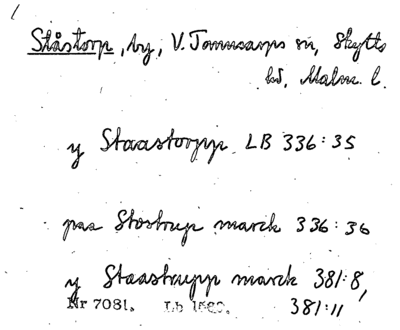 Ståstorp, by, V. Tommarps sn, Skytts
hd, Malm. l.
y Staastorpp LB 336:35
paa Stostrup marck 336:36
y Staastrupp marck 381:8,
381:11
Nr 7081. Lb 1569.